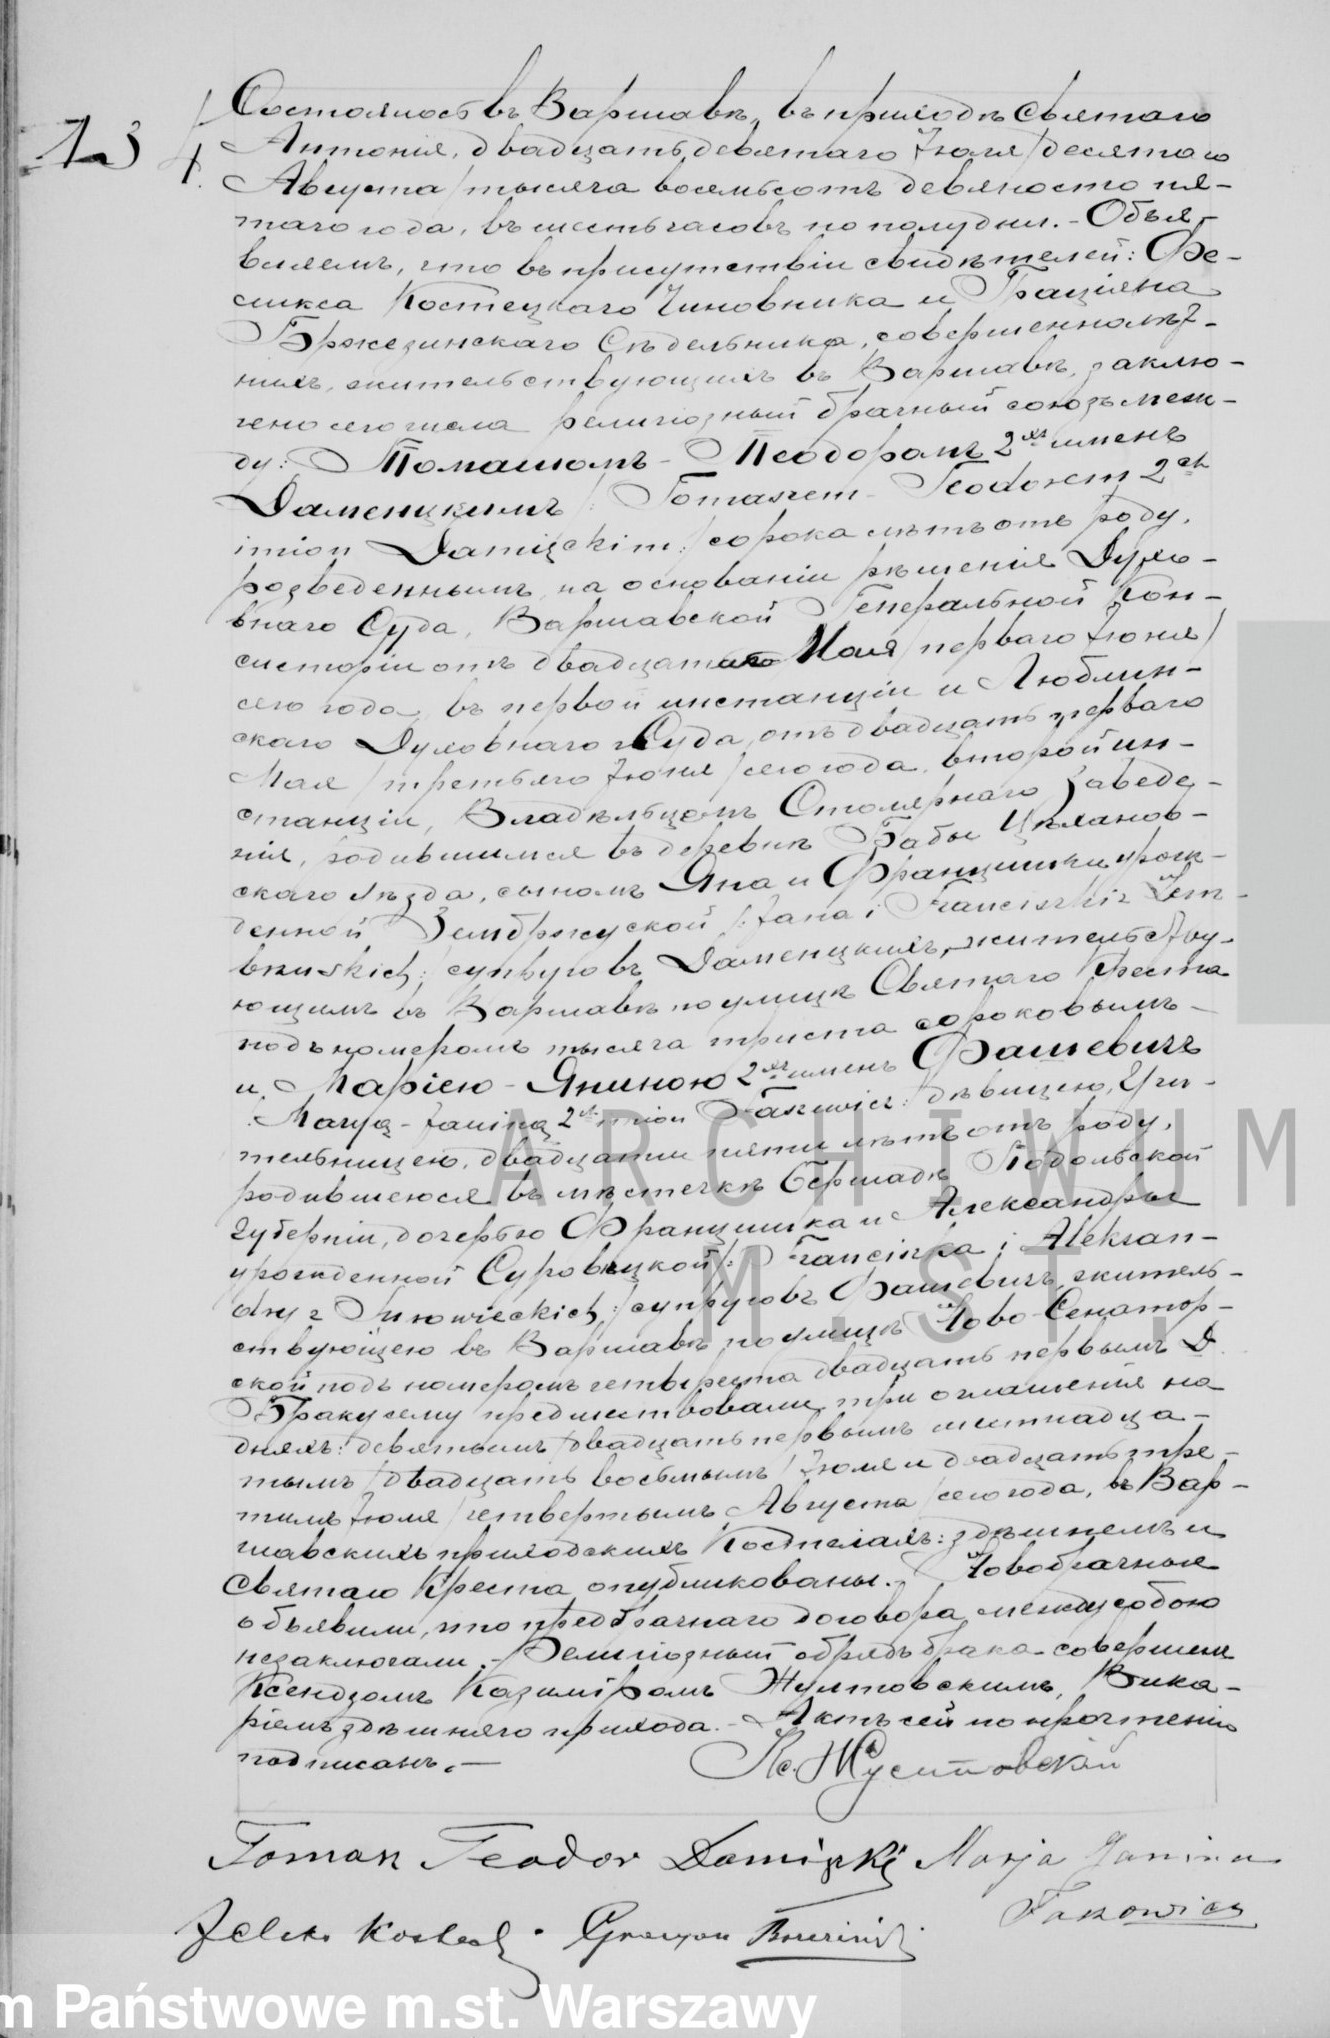 134.
Состоялось въ Варшавѣ, въ приходѣ Святаго
Антонія, двадцать девятаго Іюля /десятаго
Августа/ тысяча восемьсотъ девяносто пя-
таго года, въ шесть часовъ по полудни. - Объя-
вляемъ, что въ присутствіи свидѣтелей: Фе-
ликса Костецкаго Чиновника и Граціяна
Бржезинскаго Сѣдельника, совершеннолѣт-
нихъ, жительствующихъ въ Варшавѣ, заклю-
чено сего числа религіозный брачный союзъ меж-
ду: Томашомъ - Теодоромъ 2хъ именъ
Даменцкимъ /: Tomaszem - Teodorem 2ch
imion Damięckim :/ сорока лѣтъ отъ роду,
розведеннымъ на основаніи рѣшенія Духо-
внаго Суда, Варшавской Генеральной Кон-
систоріи отъ двадцатаго Мая /перваго Іюня/
сего года, въ первой инстанціи и Люблин-
скаго Духовнаго Суда, отъ двадцать перваго
Мая /третьяго Іюня/ сего года, второй ин-
станціи, Владѣльцемъ Столярнаго Заведе-
нія, родившимся въ деревнѣ Бабы Цѣханов-
скаго Уѣзда, сыномъ Яна и Францишки урож-
денной Зембржуской /: Jana i Franciszki z Zem-
brzuskich :/ супруговъ Даменцкихъ, жительству-
ющимъ въ Варшавѣ по улицѣ Святаго Креста
подъ номеромъ тысяча триста сороковымъ -
и Маріею - Яниною 2хъ именъ Фашевичъ
/: Maryą - Janiną 2ch imion Faszewicz :/ дѣвицею, Учи-
тельницею, двадцати пяти лѣтъ отъ роду,
родившеюся въ мѣстечкѣ Бершадѣ Подольской
губерніи, дочерью Францишка и Александры
урожденной Суровецкой /: Franciszka i Aleksan-
dry z Surowieckich :/ супруговъ Фашевичъ, житель-
ствующею въ Варшавѣ по улицѣ Ново-Сенатор-
ской подъ номеромъ четыреста двадцать первымъ D.
Браку сему предшествовали три оглашенія на
дняхъ: девятымъ /двадцать первымъ шестнадца-
тымъ /двадцать восьмымъ/ Іюля и двадцать тре-
тимъ Іюля /четвертымъ Августа/ сего года, въ Вар-
шавскихъ приходскихъ Костелахъ: здѣшнемъ и
Святаго Креста опубликованы. - Новобрачные
объявили, что предбрачнаго договора между собою
незаключали. - Религіозный обрядъ брака совершенъ
Ксендзомъ Казиміромъ Жултовскимъ, Вика-
ріемъ здѣшняго прихода. - Актъ сей по прочтеніи
подписанъ. -
Кс. Жултовскій
Tomasz Teodor Damięcki Marja Janina
Faszewicz
Felix Kostecki Gracyan Brzeziński
ARCHIWUM
M. ST.
m Państwowe m.st. Warszawy